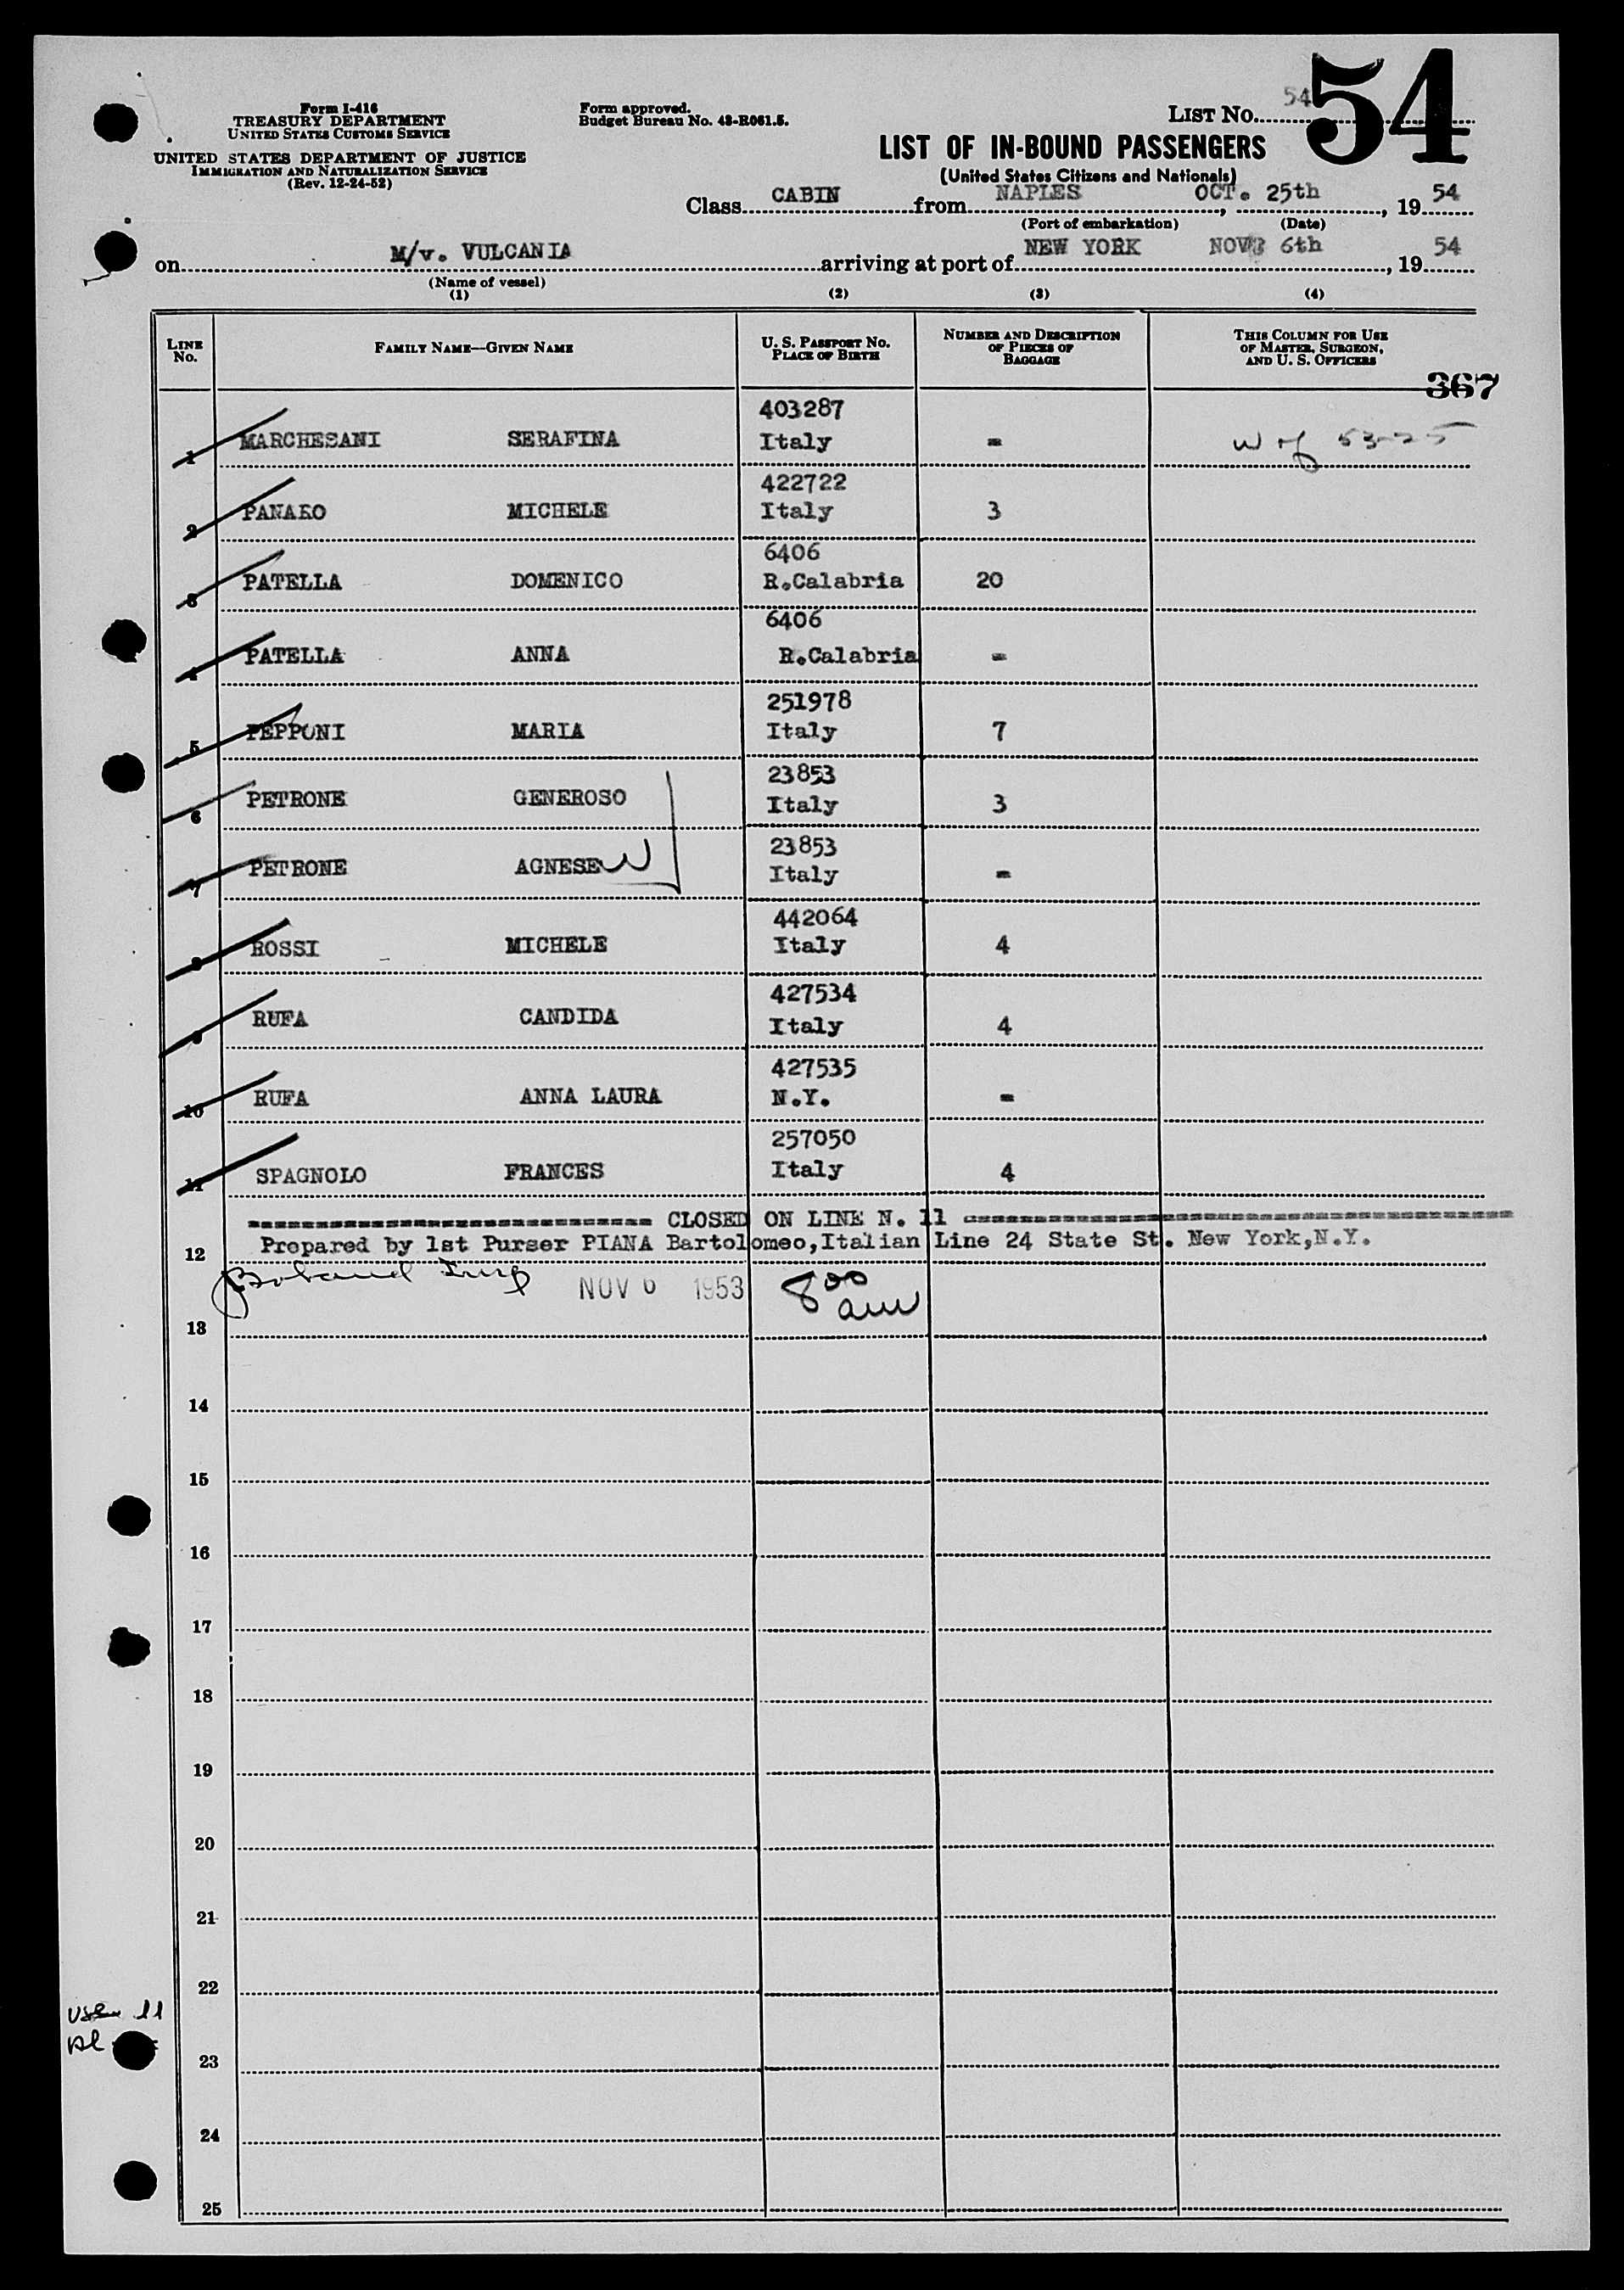 54
Form I-416
TREASURY DEPARTMENT
UNITED STATES CUSTOMS SERVICE
UNITED STATES DEPARTMENT OF JUSTICE
IMMIGRATION AND NATURALIZATION SERVICE
(Rev. 12-24-52)
Form approved.
Budget Bureau No. 43-R061.5.
LIST No. 54
LIST OF IN-BOUND PASSENGERS
(United States Citizens and Nationals)
Class CABIN from NAPLES, OCT. 25th, 19 54
(Port of embarkation) (Date)
on M/v. VULCANIA arriving at port of NEW YORK NOV 6th, 19 54
(Name of vessel)
(1) (2) (3) (4)
LINE No. FAMILY NAME—GIVEN NAME U. S. PASSPORT No. PLACE OF BIRTH NUMBER AND DESCRIPTION OF PIECES OF BAGGAGE THIS COLUMN FOR USE OF MASTER, SURGEON, AND U. S. OFFICERS
367
403287
1 MARCHESANI SERAFINA Italy - W of 53-25
422722
2 PANARO MICHELE Italy 3
6406
3 PATELLA DOMENICO R.Calabria 20
6406
4 PATELLA ANNA R.Calabria -
251978
5 PEPPONI MARIA Italy 7
23853
6 PETRONE GENEROSO Italy 3
23853
7 PETRONE AGNESE W Italy -
442064
8 ROSSI MICHELE Italy 4
427534
9 RUFA CANDIDA Italy 4
427535
10 RUFA ANNA LAURA N.Y. -
257050
11 SPAGNOLO FRANCES Italy 4
CLOSED ON LINE N. 11
12 Prepared by 1st Purser PIANA Bartolomeo, Italian Line 24 State St. New York, N.Y.
NOV 6 1953 8 00 am
13
14
15
16
17
18
19
20
21
22
11
23
24
25